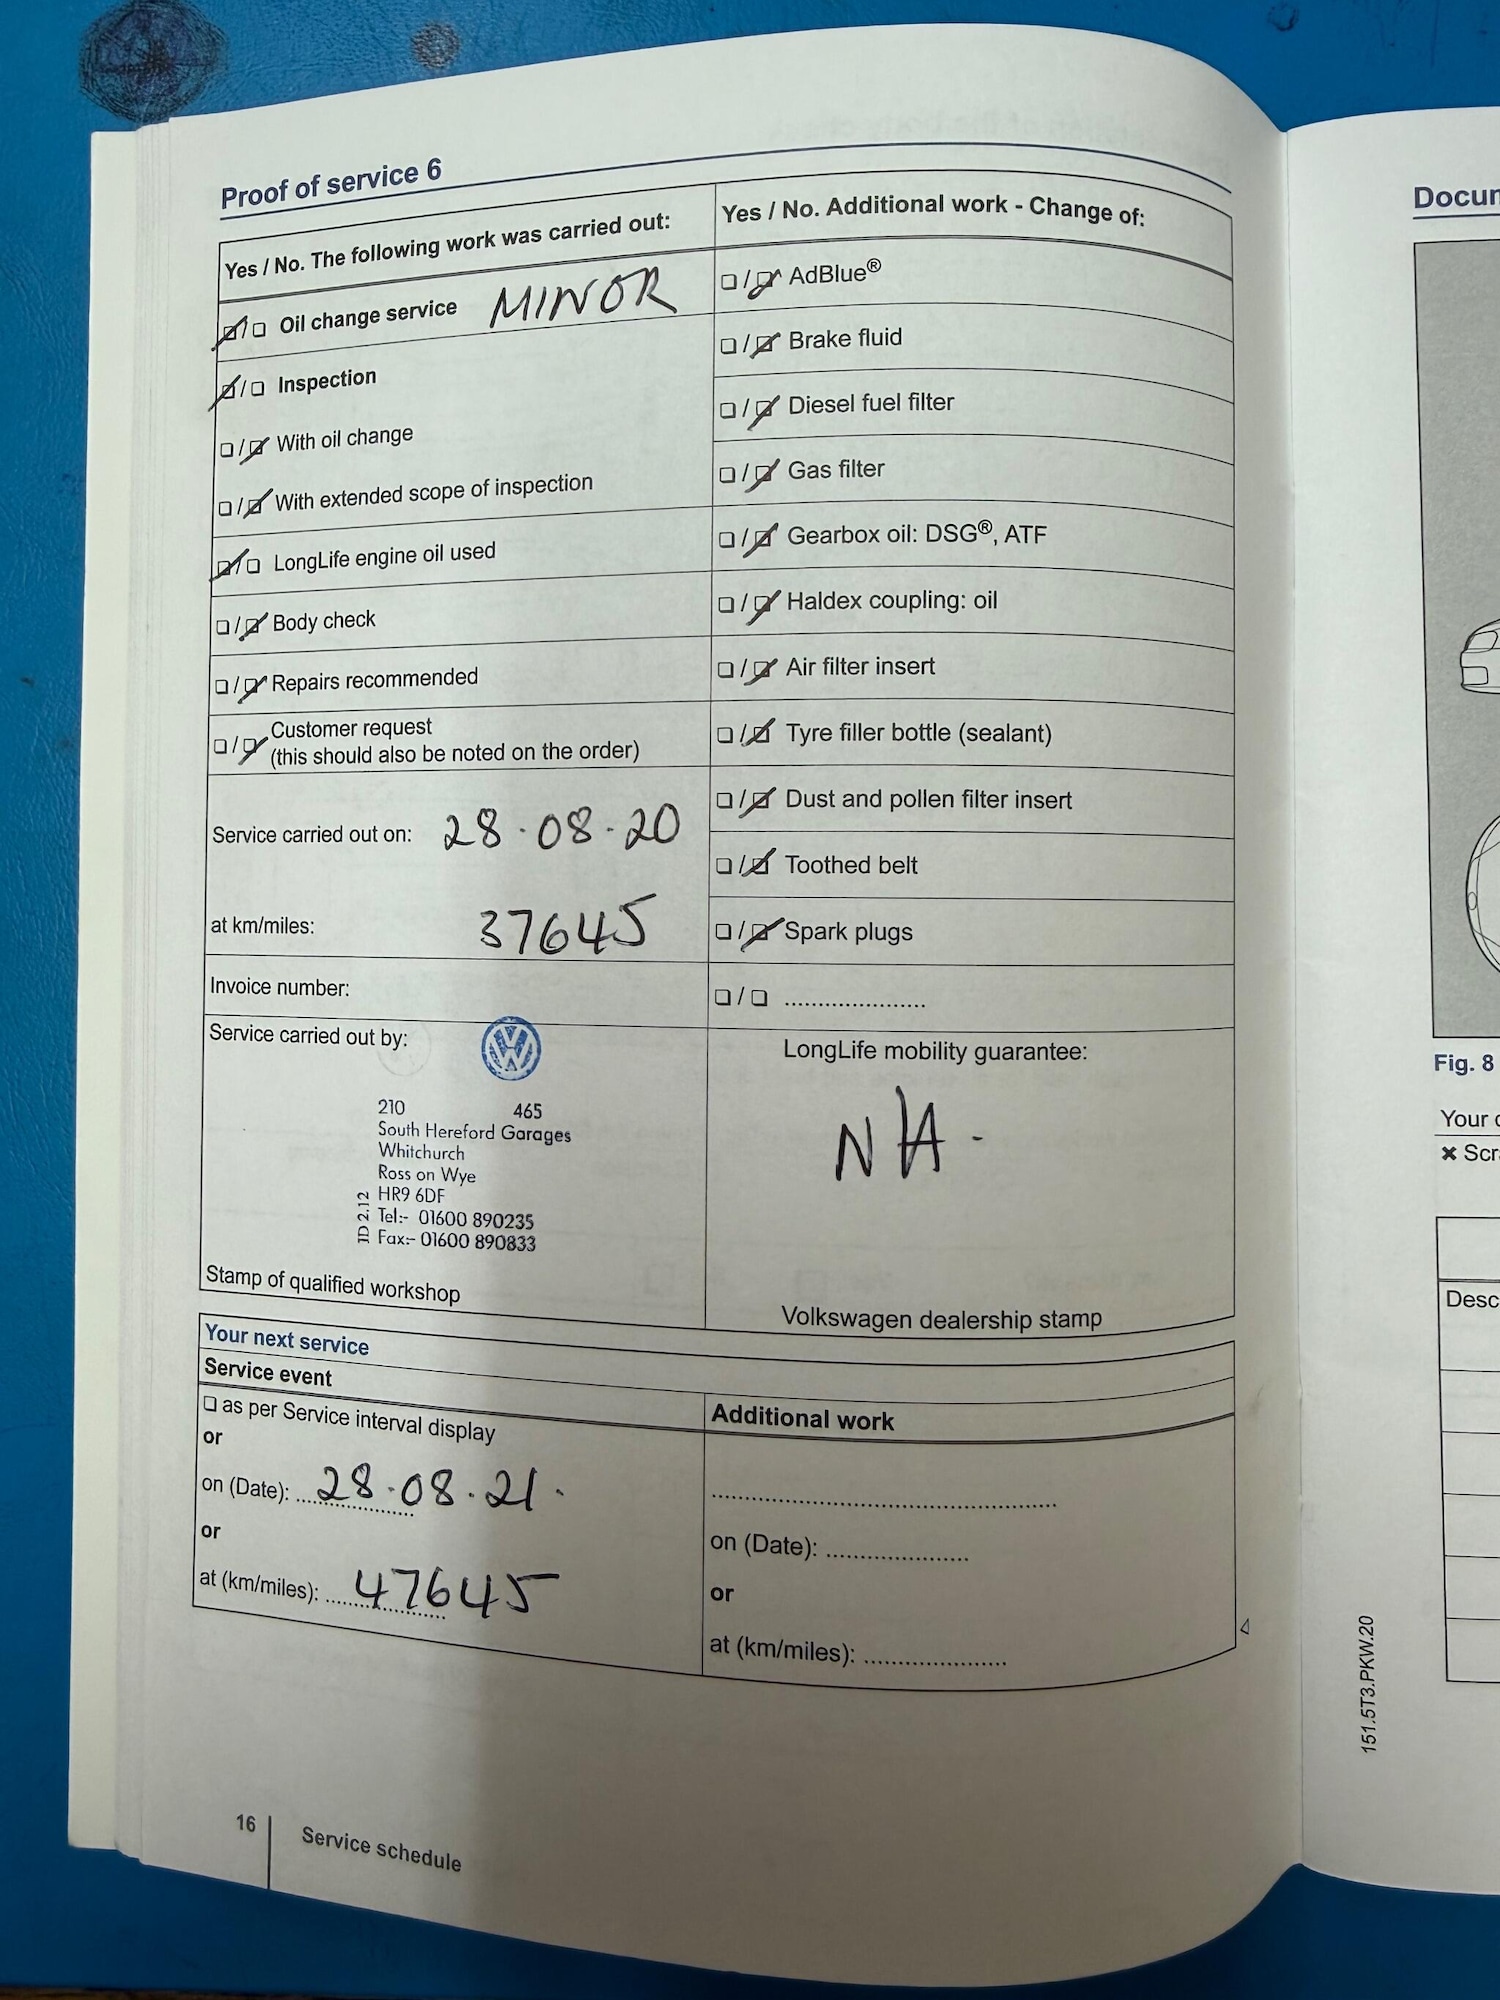 Proof of service 6
Yes / No. The following work was carried out:
☑/☐ Oil change service MINOR
☑/☐ Inspection
☐/☑ With oil change
☐/☑ With extended scope of inspection
☑/☐ LongLife engine oil used
☐/☑ Body check
☐/☑ Repairs recommended
☐/☑ Customer request
(this should also be noted on the order)
Service carried out on: 28.08.20
at km/miles: 37645
Invoice number:
Service carried out by:
210 465
South Hereford Garages
Whitchurch
Ross on Wye
HR9 6DF
Tel:- 01600 890235
Fax:- 01600 890833
ID 2.12
Stamp of qualified workshop
Yes / No. Additional work - Change of:
☐/☑ AdBlue®
☐/☑ Brake fluid
☐/☑ Diesel fuel filter
☐/☑ Gas filter
☐/☑ Gearbox oil: DSG®, ATF
☐/☑ Haldex coupling: oil
☐/☑ Air filter insert
☐/☑ Tyre filler bottle (sealant)
☐/☑ Dust and pollen filter insert
☐/☑ Toothed belt
☐/☑ Spark plugs
☐/☐ .....................
LongLife mobility guarantee:
N/A -
Volkswagen dealership stamp
Your next service
Service event
☐ as per Service interval display
or
on (Date): 28.08.21.
or
at (km/miles): 47645
Additional work
on (Date): .....................
or
at (km/miles): .....................
16 Service schedule
Docum
Fig. 8
Your
✖ Scr
Desc
151.5T3.PKW.20